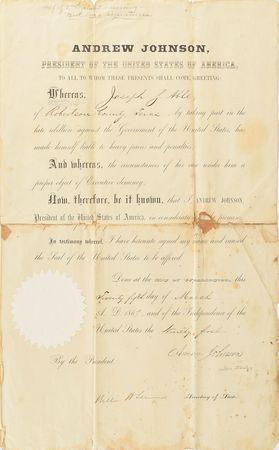 ANDREW JOHNSON,
PRESIDENT OF THE UNITED STATES OF AMERICA,
TO ALL TO WHOM THESE PRESENTS SHALL COME, GREETING:
Whereas, Joseph
of Robertson County, Texas, by taking part in the
late rebellion against the Government of the United States, has
made himself liable to heavy pains and penalties;
And whereas, the circumstances of his case render him a
proper object of Executive clemency;
Now, therefore, be it known, that I, ANDREW JOHNSON,
President of the United States of America, in consideration of the premises,
In testimony whereof, I have hereunto signed my name and caused
the Seal of the United States to be affixed.
Done at the CITY OF WASHINGTON, this
Twenty fifth day of March
A. D. 1867, and of the Independence of the
United States the Ninety first
Andrew Johnson
By the President:
Secretary of State.